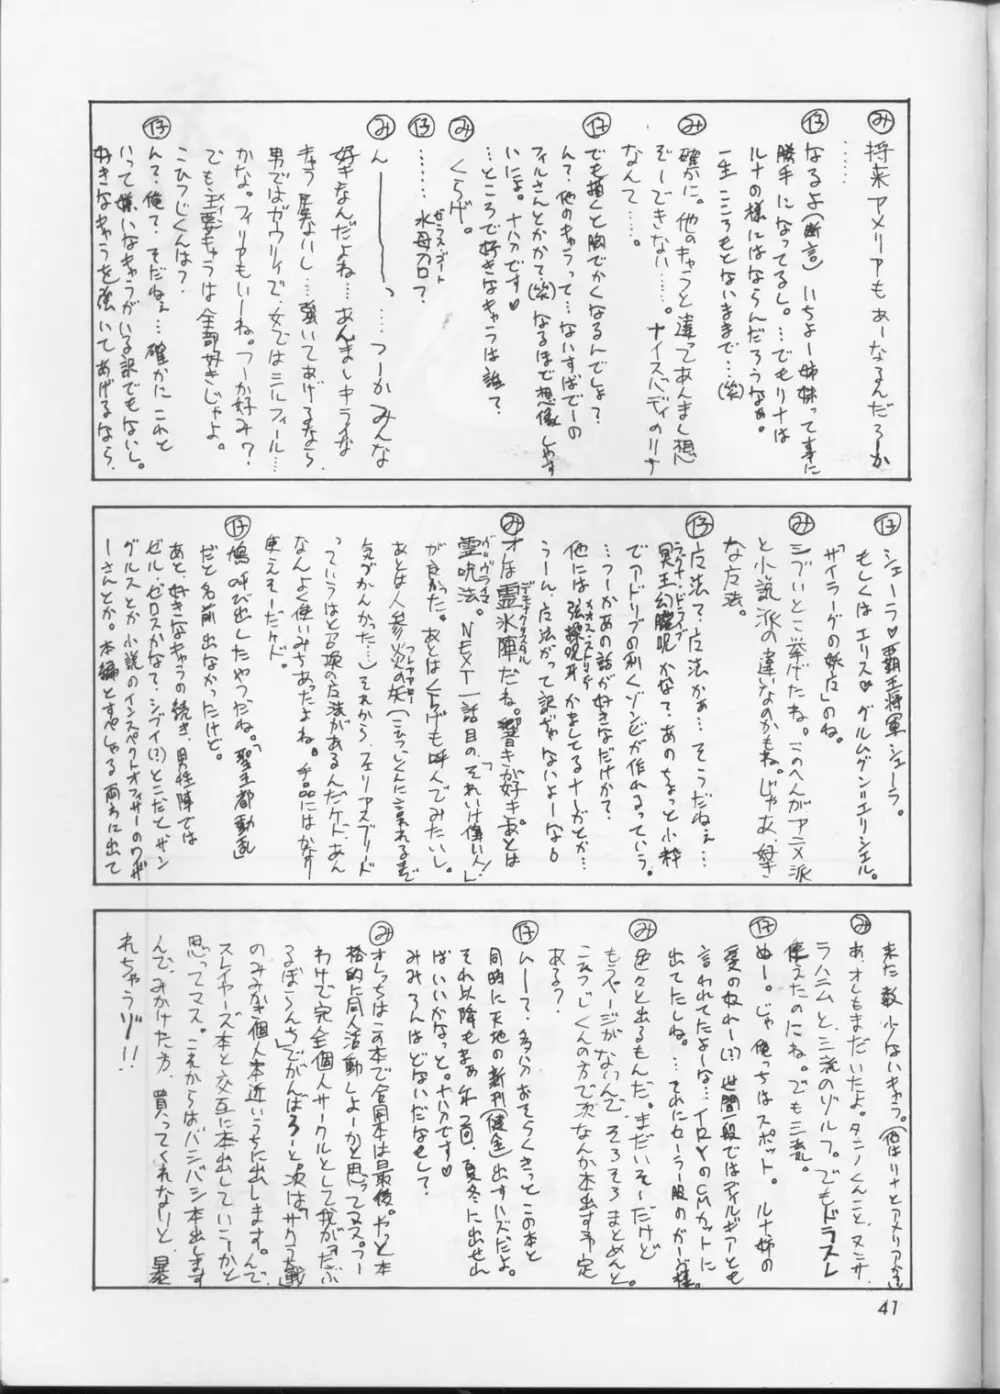 み 将来アメリアもあーなるんだろーか
……
仔 なるよ(断言)いちよー姉妹って事に
勝手になってるし。…でもリナは
ルナの様にはならんだろうなぁ。
一生こころもとないままで…(笑)
み 確かに。他のキャラと違ってあんまし想
ぞーできない……。ナイスバディのリナ
なんて…。
仔 でも描くと胸でかくなるんでしょ?
ん?他のキャラって…ないすばでーの
フィルさんとかかて(笑)なるほど想像しやす
いによ。十分です♥
…ところで好きなキャラは誰?
み くらげ。
仔 ………水母刀ロ?
み んーーーっ…つーかみんな
好きなんだよね…あんましキライな
キャラ居ないし…強いてあげるなら
男ではガウリイで、女ではシルフィール…
かな。フィリアもいーね。つーか好み?
でも、主要キャラは全部好きじゃよ。
こひつじくんは?
仔 ん?俺?そだねぇ…確かにこれと
いって嫌いなキャラがいる訳でもないし。
好きなキャラを強いてあげるなら、
仔 シェーラ♥覇王将軍シェーラ。
もしくはエリス♥グルムグン=エリシエル。
「サイラーグの妖女」のね。
み シブいとこ挙げたね。このへんがアニメ派
と小説派の違いなのかもね。じゃあ、好き
な呪法。
仔 呪法?呪法かぁ…そうだねぇ…
冥王幻朧呪かな?あのちょっと小粋
でアドリブの利くゾンビが作れるっていう。
…つーかあの話が好きなだけか?
他には
うーん、呪法がって訳ぢゃないよーな
み オレは霊氷陣だね。響きが好き。あとは
霊呪法。NEXT一話目の「それいけ偉い人!」
が良かった。あとはくらげも呼んでみたいし。
あとは人参炎の矢(こひつじくんに言われるまで
気づかんかった…)それから、フェリアスブリード
っていうはと召喚の呪法があるんだケド、あん
なんよく使いみちあったよね。手品にはかなり
使えそーだケド。
仔 鳩の呼び出したやつだね。「聖王都動乱」
だと名前出なかったけど。
あと、好きなキャラの続き、男性陣では
ゼル・ゼロスかな?シブイ(?)とこだと、ザン
グルスとか小説のインスペクトオフィサーのワイザ
ーさんとか。本編とすぺしゃる両方に出て
来た数少ないキャラ。(他はリナとアメリア含)
み あ、オレもまだいたよ。タニノくんこと、ヌンサ、
ラハニムと、三流のゾルフ。でもドラスレ
使えたのにね。でも三流。
仔 ぬー。じゃ俺っちはスポット。ルナ姉の
愛の奴れー(?)世間一般ではディルギアとも
言われてたよーな…イロYのCMカットに
出てたしね。…それにセーラー服のガーヴ様。
み 色々と出るもんだ。まだいそーだけど
もうページがないんで、そろそろまとめんと。
こひつじくんの方で次なんか本出す予定
ある?
仔 んー?多分おそらくきっとこの本と
同時に天地の新刊(健全)出すハズだよ。
それ以降もまぁ年2回、夏冬に出せれ
ばいいかなっと。十分です♥
みみろんはどないだなもして?
み オレっちはこの本で合同本は最後。やっと本
格的に同人活動しよーかと思ってマス。つー
わけで完全個人サークルとして我が「たぶ
るぼーらんち」でがんばろーと次は「サクラ大戦」
のみみかぎ個人本近いうちに出します。んで、
スレイヤーズ本と交互に本出していこーかと
思ってマス。これからは、バシバシ本出します
んで、みかけた方、買ってくれないと、暴
れちゃうゾ!!
41